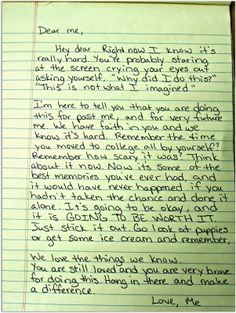 Dear me,
Hey dear. Right now I know it's
really hard. You're probably staring
at the screen crying your eyes out
asking yourself, "Why did I do this?"
"This is not what I imagined"
I'm here to tell you that you are doing
this for past me, and for very future
me. We have faith in you and we
know it's hard. Remember the time
you moved to college all by yourself?
Remember how scary it was? Think
about it now. Now its some of the
best memories you've ever had, and
it would have never happened if you
hadn't taken the chance and done it
alone. It's going to be okay, and
it is GOING TO BE WORTH IT.
Just stick it out. Go look at puppies
or get some ice cream and remember,
We love the things we know.
You are still loved and you are very brave
for doing this. Hang in there and make
a difference.
Love, Me